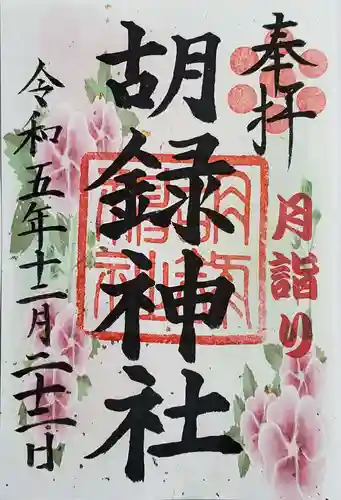 奉拝
月詣り
胡録神社
令和五年十二月二十二日